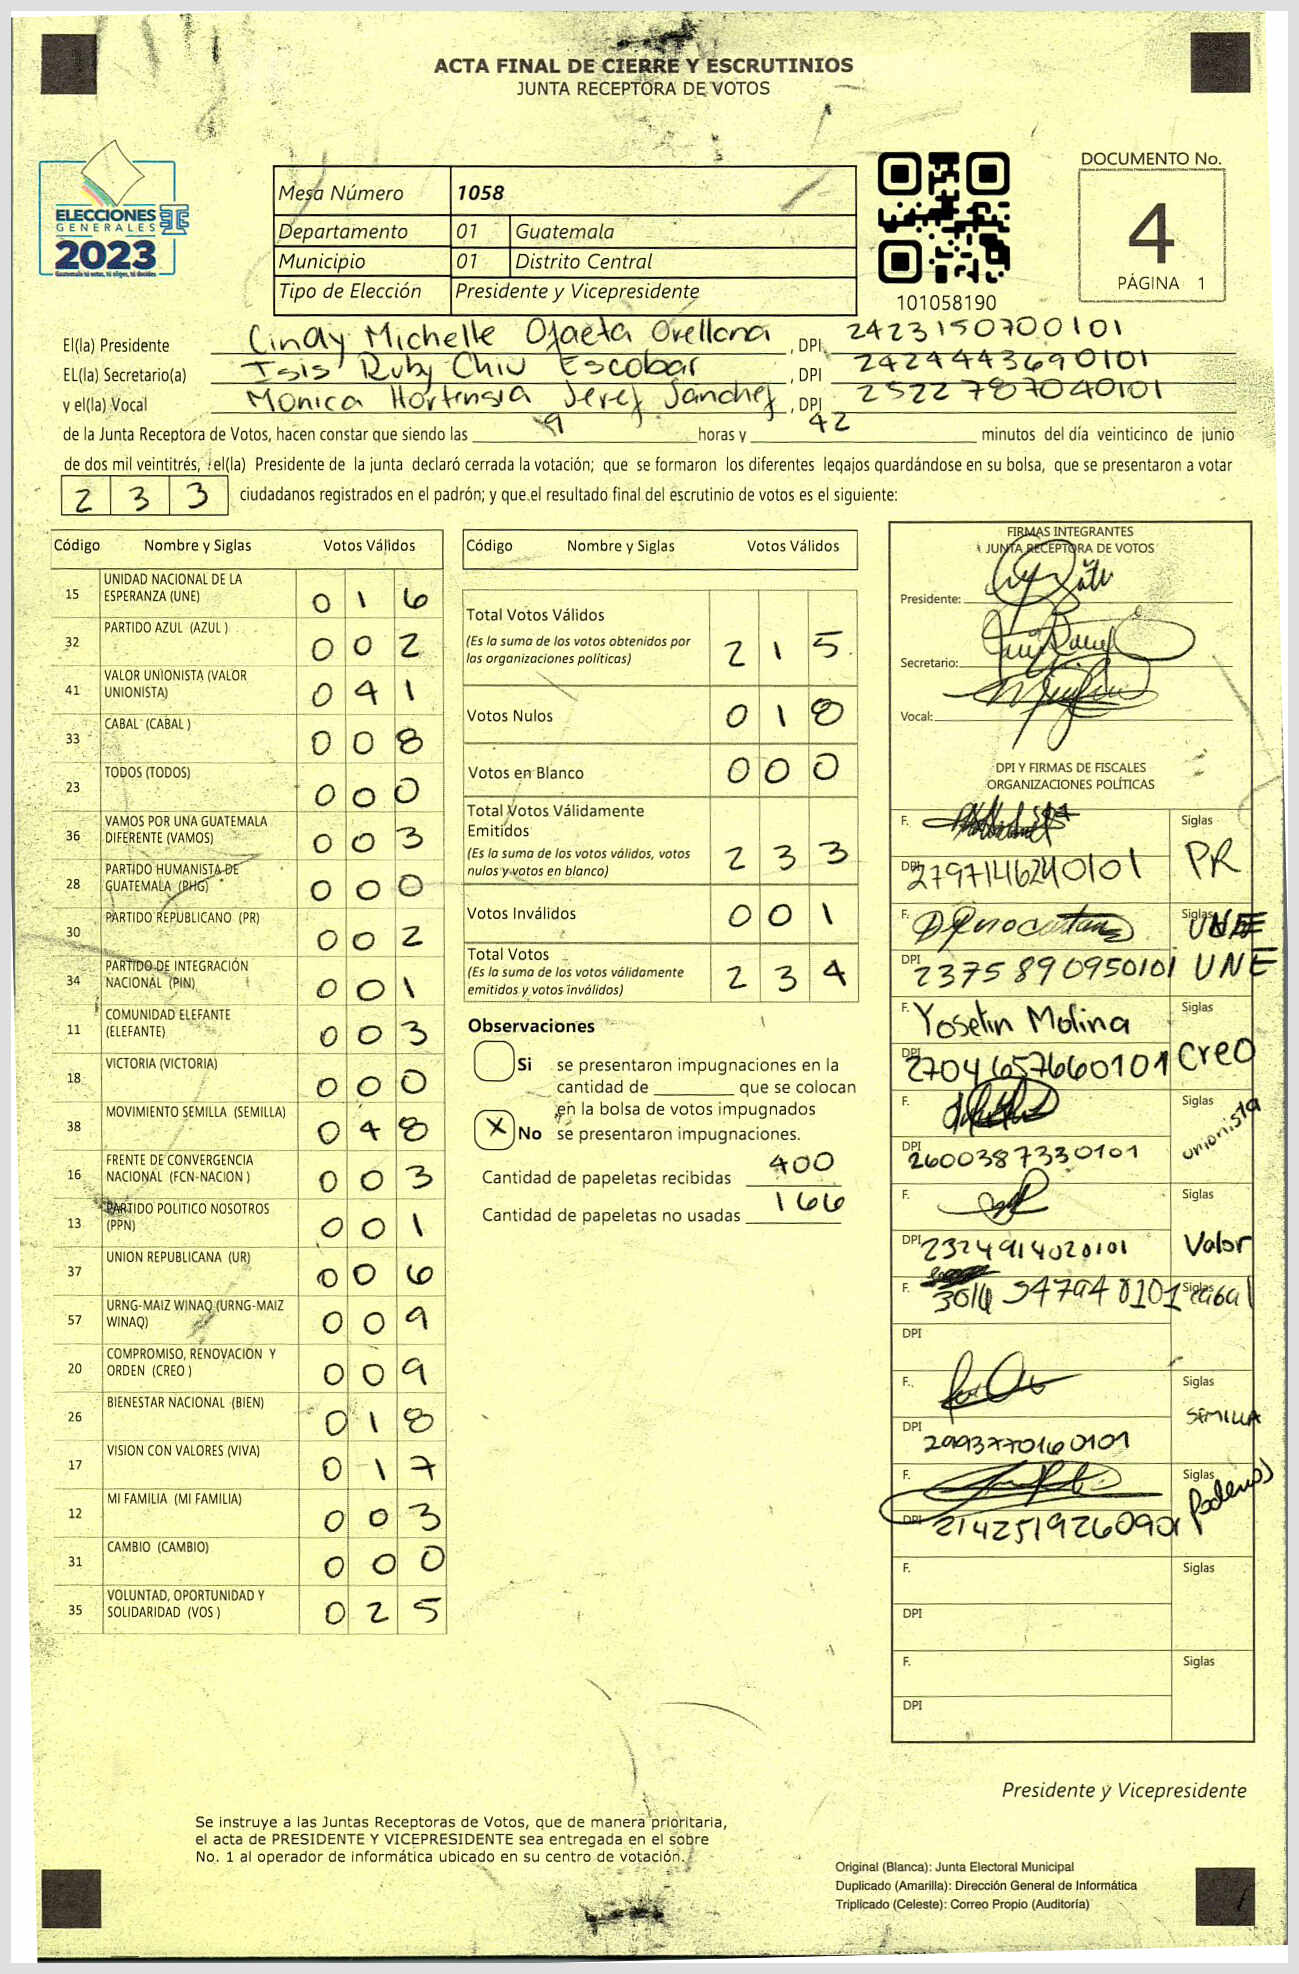 ACTA FINAL DE CIERRE Y ESCRUTINIOS
JUNTA RECEPTORA DE VOTOS
ELECCIONES
GENERALES
2023
Guatemala tú votas, tú eliges, tú decides
Mesa Número 1058
Departamento 01 Guatemala
Municipio 01 Distrito Central
Tipo de Elección Presidente y Vicepresidente
101058190
DOCUMENTO No.
4
PÁGINA 1
El(la) Presidente Cindy Michelle Ojaeta Orellana , DPI 2423150700101
EL(la) Secretario(a) Isis Ruby Chiu Escobar , DPI 2424443690101
y el(la) Vocal Monica Hortensia Jerez Sanchez , DPI 2522787040101
de la Junta Receptora de Votos, hacen constar que siendo las 9 horas y 42 minutos del día veinticinco de junio
de dos mil veintitrés, el(la) Presidente de la junta declaró cerrada la votación; que se formaron los diferentes legajos quardándose en su bolsa, que se presentaron a votar
233 ciudadanos registrados en el padrón; y que el resultado final del escrutinio de votos es el siguiente:
Código Nombre y Siglas Votos Válidos
15 UNIDAD NACIONAL DE LA ESPERANZA (UNE) 0 1 6
32 PARTIDO AZUL (AZUL ) 0 0 2
41 VALOR UNIONISTA (VALOR UNIONISTA) 0 4 1
33 CABAL (CABAL ) 0 0 8
23 TODOS (TODOS) 0 0 0
36 VAMOS POR UNA GUATEMALA DIFERENTE (VAMOS) 0 0 3
28 PARTIDO HUMANISTA DE GUATEMALA (PHG) 0 0 0
30 PARTIDO REPUBLICANO (PR) 0 0 2
34 PARTIDO DE INTEGRACIÓN NACIONAL (PIN) 0 0 1
11 COMUNIDAD ELEFANTE (ELEFANTE) 0 0 3
18 VICTORIA (VICTORIA) 0 0 0
38 MOVIMIENTO SEMILLA (SEMILLA) 0 4 8
16 FRENTE DE CONVERGENCIA NACIONAL (FCN-NACION ) 0 0 3
13 PARTIDO POLITICO NOSOTROS (PPN) 0 0 1
37 UNION REPUBLICANA (UR) 0 0 6
57 URNG-MAIZ WINAQ (URNG-MAIZ WINAQ) 0 0 9
20 COMPROMISO, RENOVACION Y ORDEN (CREO ) 0 0 9
26 BIENESTAR NACIONAL (BIEN) 0 1 8
17 VISION CON VALORES (VIVA) 0 1 7
12 MI FAMILIA (MI FAMILIA) 0 0 3
31 CAMBIO (CAMBIO) 0 0 0
35 VOLUNTAD, OPORTUNIDAD Y SOLIDARIDAD (VOS ) 0 2 5
Código Nombre y Siglas Votos Válidos
Total Votos Válidos
(Es la suma de los votos obtenidos por
las organizaciones políticas) 2 1 5
Votos Nulos 0 1 8
Votos en Blanco 0 0 0
Total Votos Válidamente
Emitidos
(Es la suma de los votos válidos, votos
nulos y votos en blanco) 2 3 3
Votos Inválidos 0 0 1
Total Votos
(Es la suma de los votos válidamente
emitidos y votos inválidos) 2 3 4
Observaciones
Si se presentaron impugnaciones en la
cantidad de ________ que se colocan
en la bolsa de votos impugnados
X No se presentaron impugnaciones.
Cantidad de papeletas recibidas 400
Cantidad de papeletas no usadas 166
FIRMAS INTEGRANTES
JUNTA RECEPTORA DE VOTOS
Presidente:
Secretario:
Vocal:
DPI Y FIRMAS DE FISCALES
ORGANIZACIONES POLÍTICAS
F. Siglas
DPI 2797146240101 PR
F. Siglas UNE
DPI 2375890950101 UNE
F. Yoselin Molina Siglas
DPI 2704657660101 Creo
F. Siglas
DPI 2600387330101 unionista
F. Siglas
DPI 2324914020101 Valor
F. 3016 54794 0101 Siglas cabal
DPI
F. Siglas
DPI 2993770160101 SEMILLA
F. Siglas
DPI 2142519260901 Podemos
F. Siglas
DPI
F. Siglas
DPI
Presidente y Vicepresidente
Se instruye a las Juntas Receptoras de Votos, que de manera prioritaria,
el acta de PRESIDENTE Y VICEPRESIDENTE sea entregada en el sobre
No. 1 al operador de informática ubicado en su centro de votación.
Original (Blanca): Junta Electoral Municipal
Duplicado (Amarilla): Dirección General de Informática
Triplicado (Celeste): Correo Propio (Auditoría)